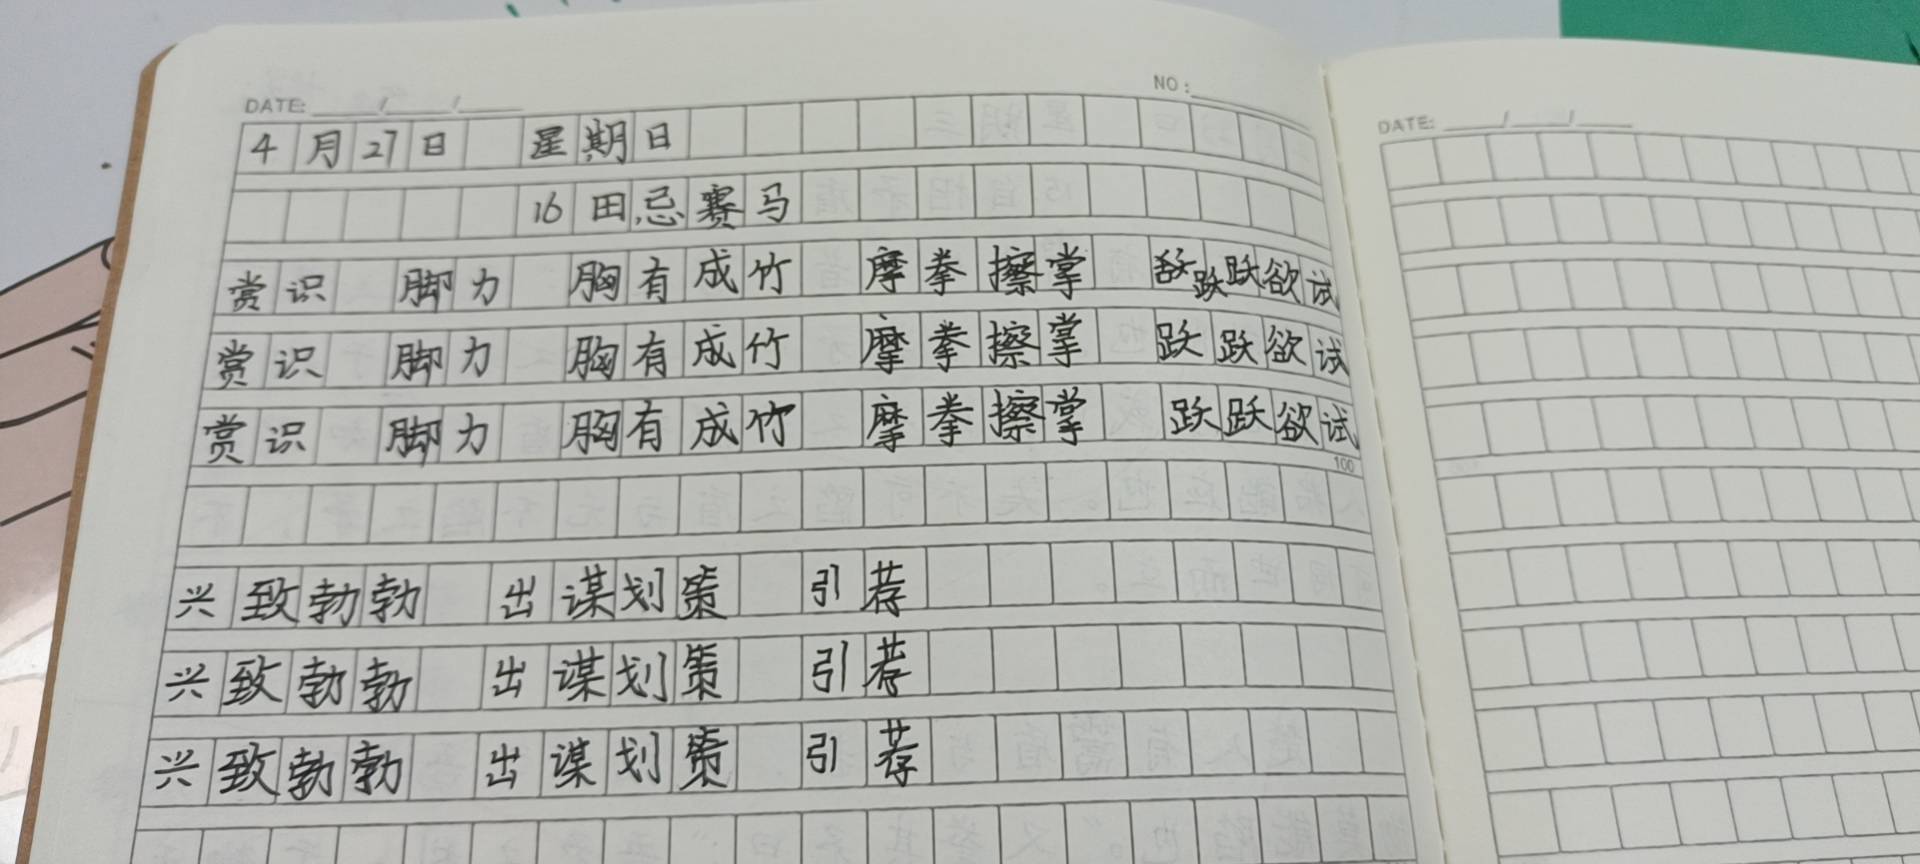 DATE: ____/____/____ NO:________
4月27日 星期日
16 田忌赛马
赏识 脚力 胸有成竹 摩拳擦掌 跃跃欲试
赏识 脚力 胸有成竹 摩拳擦掌 跃跃欲试
赏识 脚力 胸有成竹 摩拳擦掌 跃跃欲试
100
兴致勃勃 出谋划策 引荐
兴致勃勃 出谋划策 引荐
兴致勃勃 出谋划策 引荐
DATE: ____/____/____